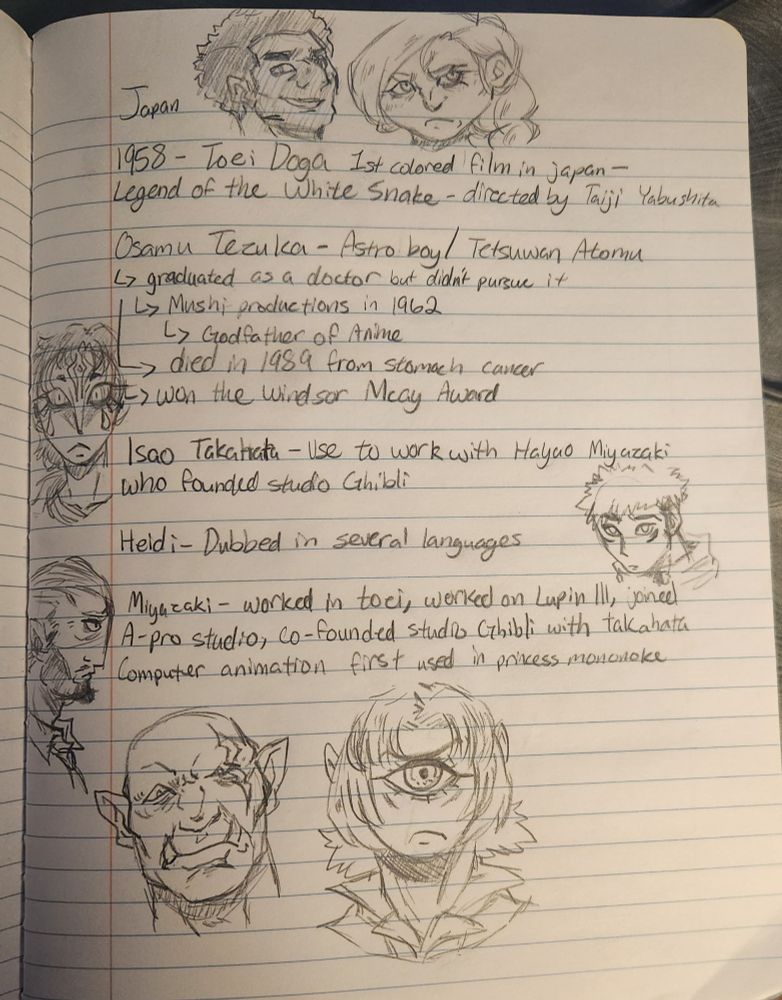 Japan
1958 - Toei Doga 1st colored film in japan -
Legend of the White Snake - directed by Taiji Yabushita
Osamu Tezuka - Astro boy/ Tetsuwan Atomu
↳ graduated as a doctor but didn't pursue it
↳ Mushi productions in 1962
↳ Godfather of Anime
→ died in 1989 from stomach cancer
→ won the Windsor Mcay Award
Isao Takahata - Use to work with Hayao Miyazaki
who founded studio Ghibli
Heidi - Dubbed in several languages
Miyazaki - worked in toei, worked on Lupin III, joined
A-pro studio, Co-founded studio Ghibli with takahata
Computer animation first used in princess mononoke